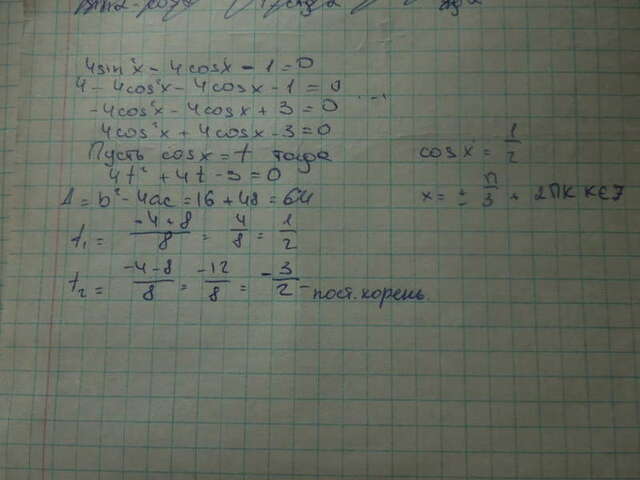 4sin²x - 4cosx - 1 = 0
4 - 4cos²x - 4cosx - 1 = 0 ...
-4cos²x - 4cosx + 3 = 0
4cos²x + 4cosx - 3 = 0
Пусть cosx = t тогда
4t² + 4t - 3 = 0
Д = b² - 4ac = 16 + 48 = 64
t₁ = (-4+8)/8 = 4/8 = 1/2
t₂ = (-4-8)/8 = -12/8 = -3/2 - пост. корень.
cosx = 1/2
x = ± П/3 + 2ПК К∈Z